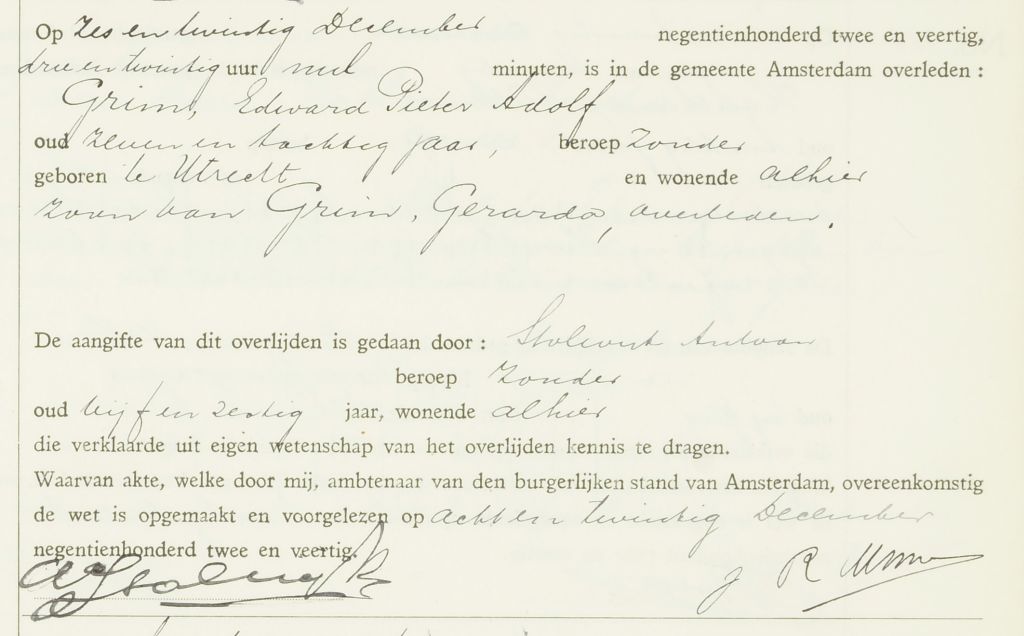 Op zes en twintig December negentienhonderd twee en veertig,
drie en twintig uur nul minuten, is in de gemeente Amsterdam overleden :
Grim, Edward Pieter Adolf
oud zeven en tachtig jaar, beroep zonder
geboren te Utrecht en wonende alhier
zoon van Grim, Gerardo, overleden.
De aangifte van dit overlijden is gedaan door : Antoon
beroep zonder
oud vijf en zestig jaar, wonende alhier
die verklaarde uit eigen wetenschap van het overlijden kennis te dragen.
Waarvan akte, welke door mij, ambtenaar van den burgerlijken stand van Amsterdam, overeenkomstig
de wet is opgemaakt en voorgelezen op acht en twintig December
negentienhonderd twee en veertig.